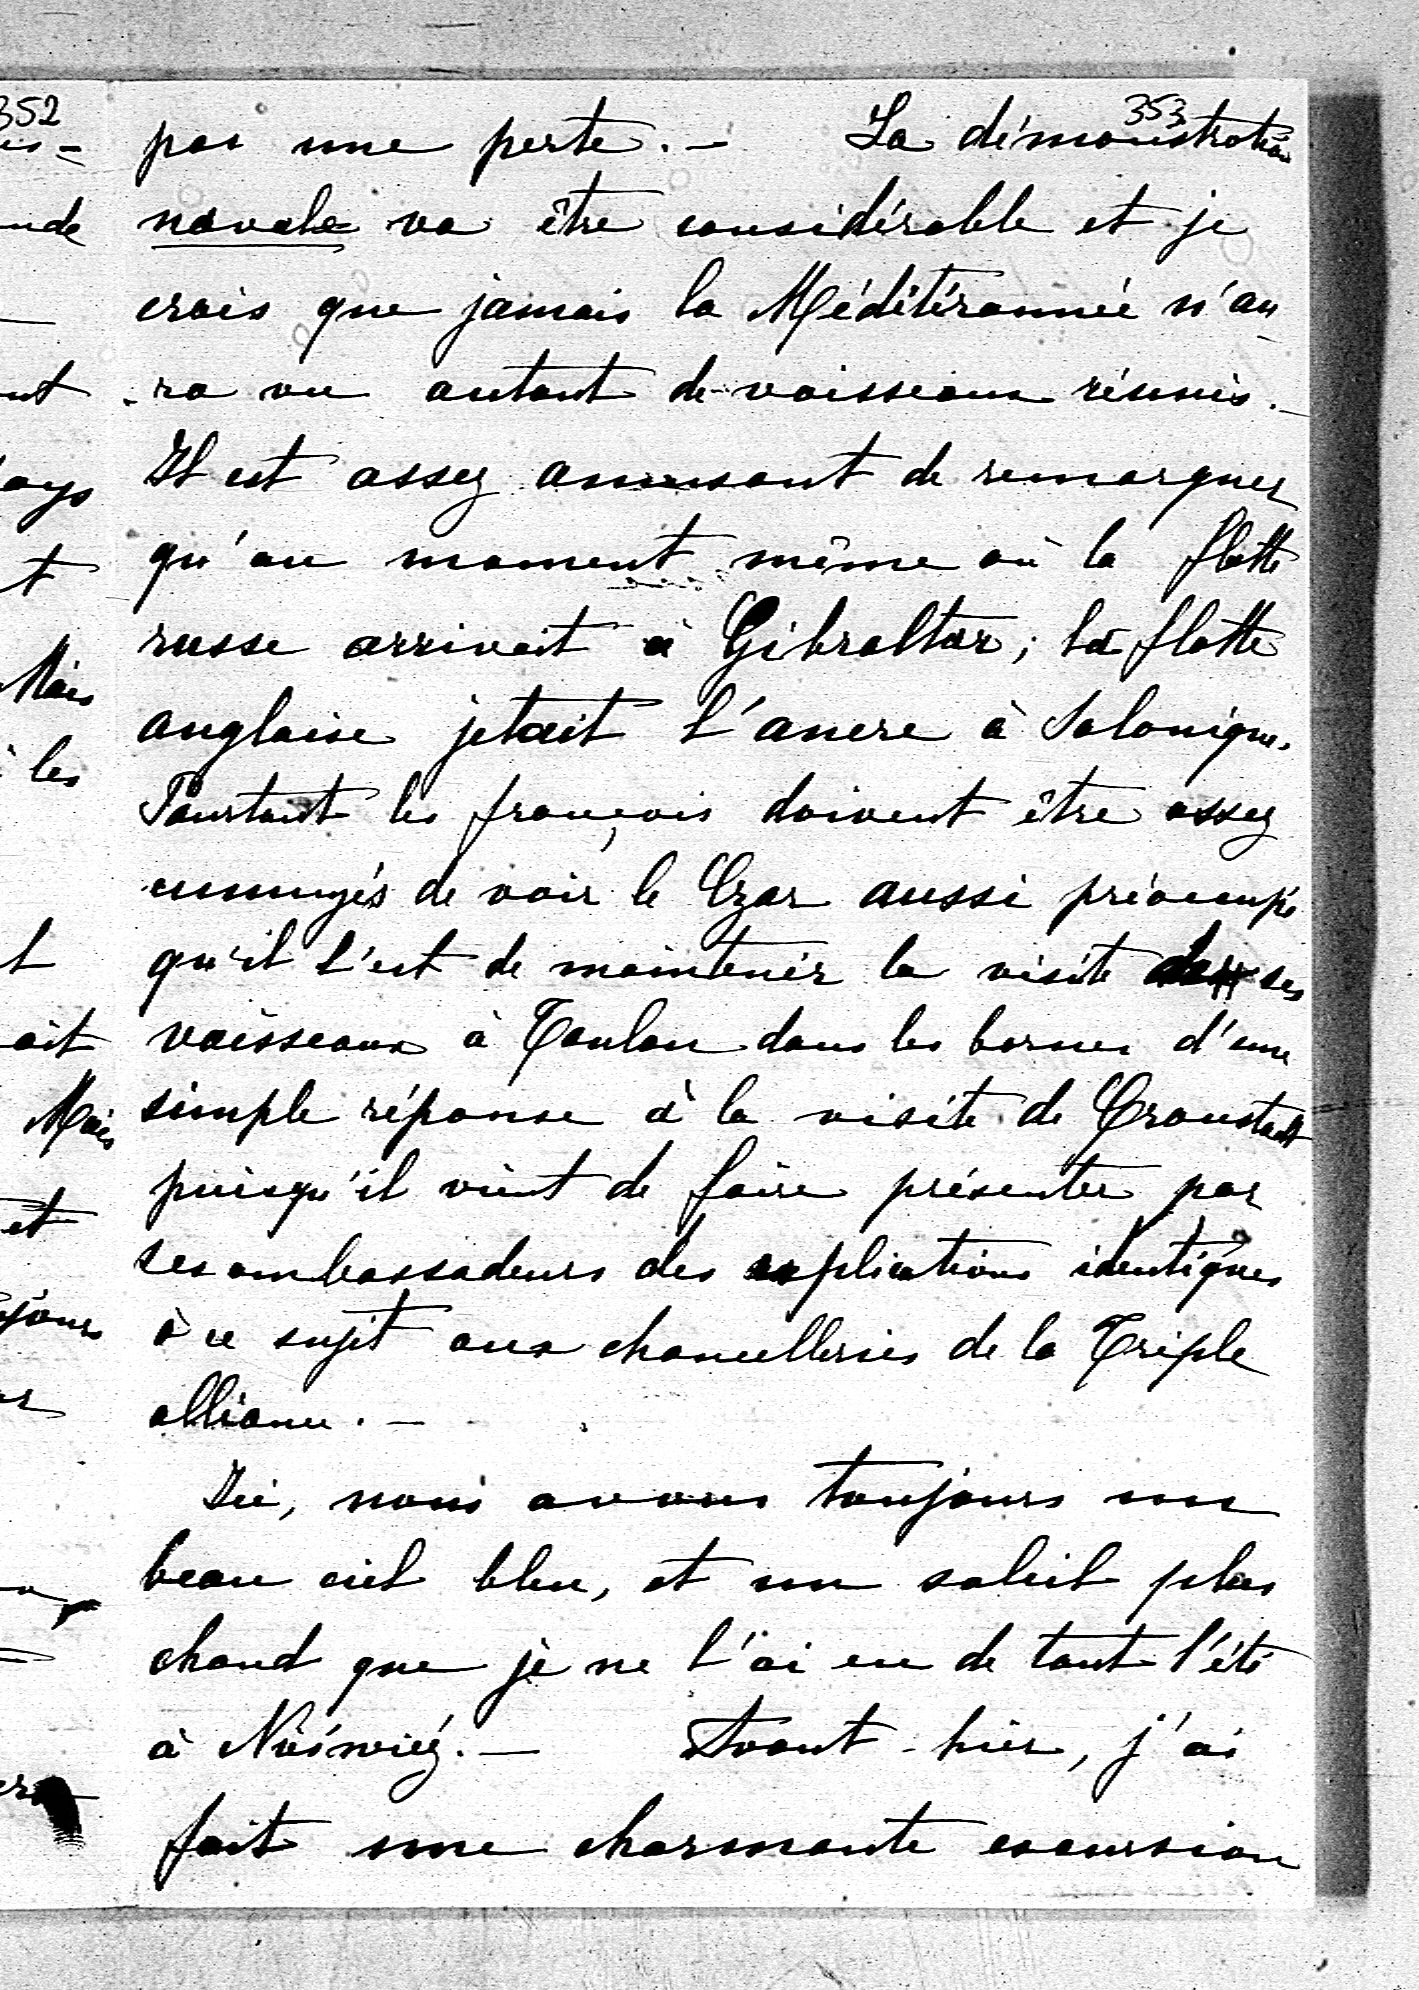 352
353
pas une perte. – La démonstration
navale va être considérable et je
crois que jamais la Méditéranneé n'au
-ra vu autant de vaisseaux réunis. –
Il est assez amusant de remarquer
qu'au moment même où la flotte
russe arrivait à Gibraltar; la flotte
anglaise jetait l'ancre à Salonique.
Pourtant les français doivent être assez
ennuyés de voir le Czar aussi préoccupé
qu'il l'est de maintenir la visite de ses
vaisseaux à Toulon dans les bornes d'une
simple réponse à la visite de Cronstadt
puisqu'il vient de faire présenter par
ses ambassadeurs des explications identiques
à ce sujet aux chancelleries de la Triple
alliance. –
Ici, nous avons toujours un
beau ciel bleu, et un soleil plus
chaud que je ne l'ai eu de tout l'été
à Nieświéz. – Avant-hier, j'ai
fait une charmante excursion
nde
nt
ays
t
Mais
à les
t
ait
Mais
et
ujours